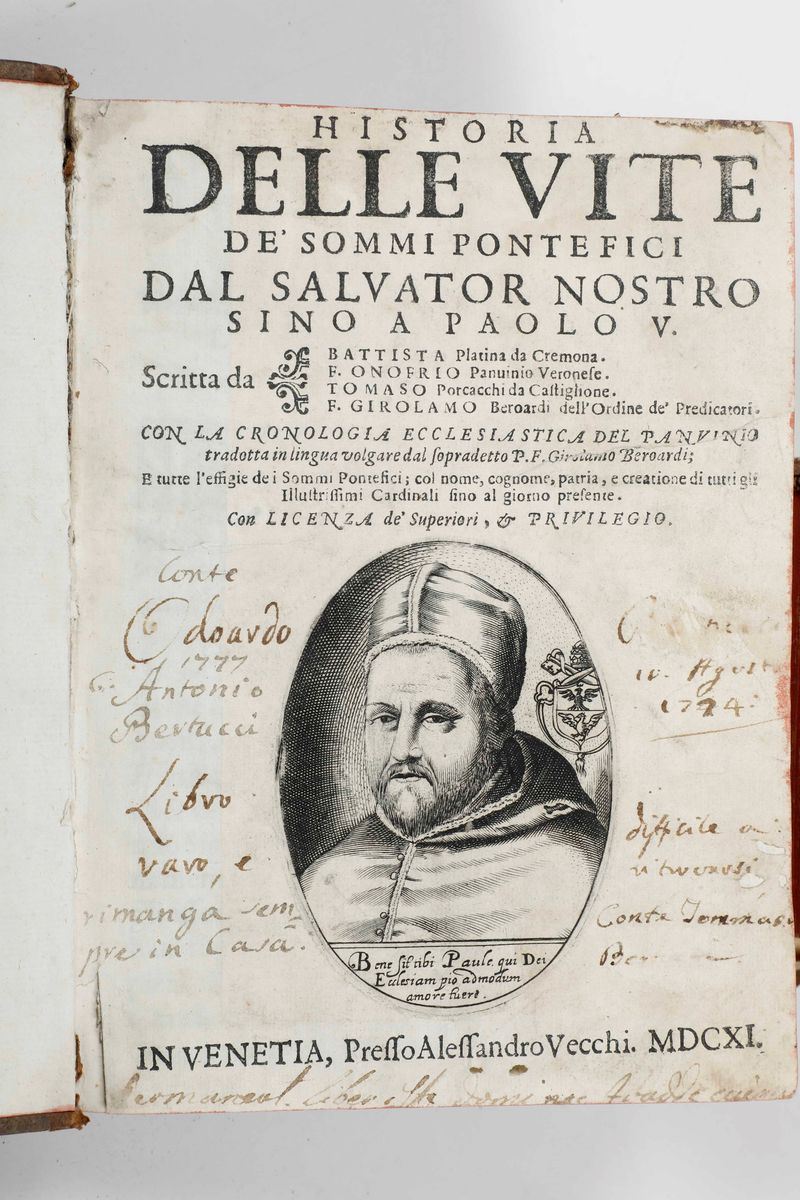 HISTORIA
DELLE VITE
DE' SOMMI PONTEFICI
DAL SALVATOR NOSTRO
SINO A PAOLO V.
Scritta da
BATTISTA Platina da Cremona.
F. ONOFRIO Panuinio Veroneſe.
TOMASO Porcacchi da Caſtiglione.
F. GIROLAMO Beroardi dell'Ordine de' Predicatori.
CON LA CRONOLOGIA ECCLESIASTICA DEL PANVINIO
tradotta in lingua volgare dal ſopradetto P. F. Girolamo Beroardi;
E tutte l'effigie de i Sommi Pontefici; col nome, cognome, patria, e creatione di tutti gli
Illuſtriſſimi Cardinali ſino al giorno preſente.
Con LICENZA de' Superiori, & PRIVILEGIO.
Conte
Odoardo
1777
Antonio
Bertucci
Libro
raro, e
rimanga sem
pre in Casa.
10. Agosto
1774.
difficile a
Conte Tommaso
Bene sit tibi Paule. qui Dei
Ecclesiam pio admodum
amore
IN VENETIA, Preſſo Aleſſandro Vecchi. MDCXI.
liber iste